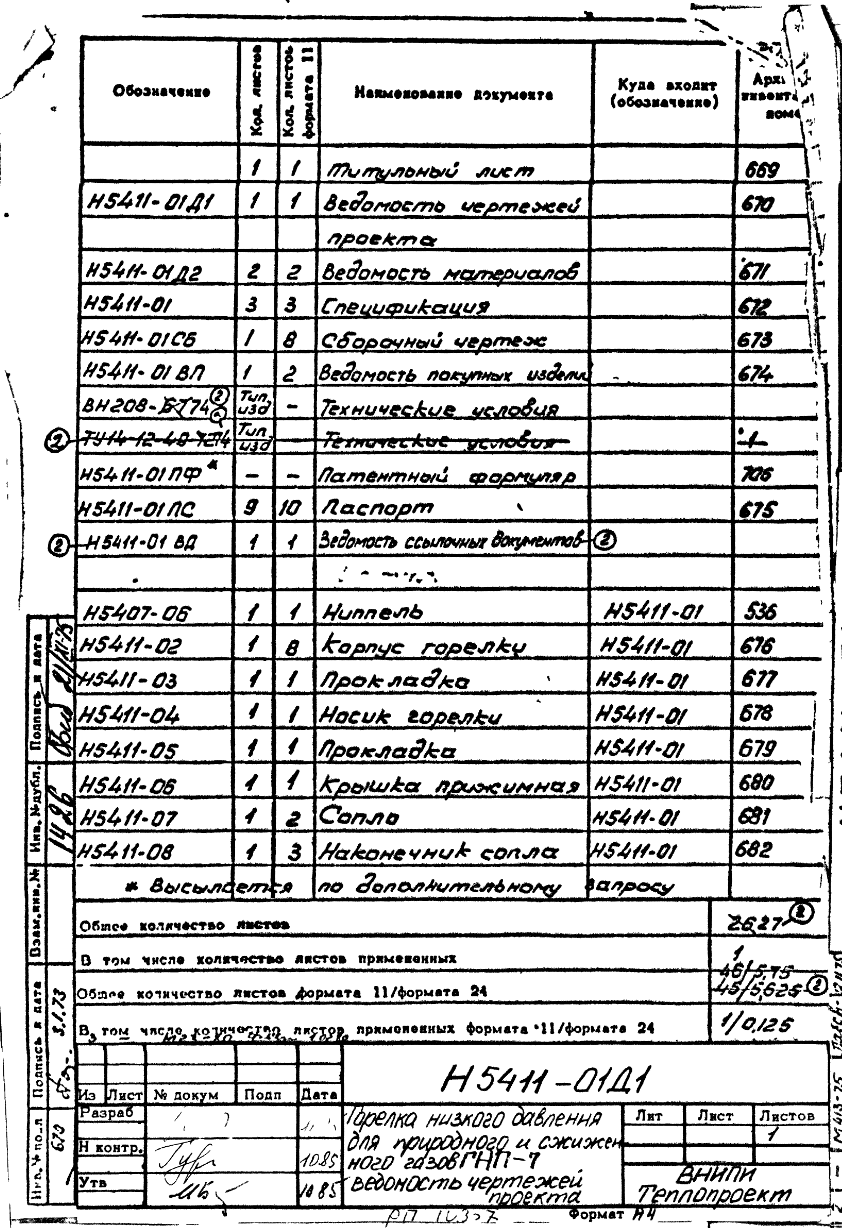 Обозначение Кол. листов Кол. листов формата 11 Наименование документа Куда входит (обозначение)
1 1 Титульный лист 669
Н5411-01Д1 1 1 Ведомость чертежей 670
проекта
Н5411-01Д2 2 2 Ведомость материалов 671
Н5411-01 3 3 Спецификация 672
Н5411-01СБ 1 8 Сборочный чертеж 673
Н5411-01 ВП 1 2 Ведомость покупных издели 674
ВН208- 74 ② Тип. изд – Технические условия
② ТУ14-12-40- Тип изд Технические условия 1
Н5411-01ПФ* – – Патентный формуляр 706
Н5411-01ПС 9 10 Паспорт 675
② Н5411-01 ВД 1 1 Ведомость ссылочных документов ②
Н5407-06 1 1 Ниппель Н5411-01 536
Н5411-02 1 8 Корпус горелки Н5411-01 676
Н5411-03 1 1 Прокладка Н5411-01 677
Н5411-04 1 1 Носик горелки Н5411-01 678
Н5411-05 1 1 Прокладка Н5411-01 679
Н5411-06 1 1 Крышка прижимная Н5411-01 680
Н5411-07 1 2 Сопло Н5411-01 681
Н5411-08 1 3 Наконечник сопла Н5411-01 682
* Высылается по дополнительному запросу
Общее количество листов 26 27 ②
В том числе количество листов примененных 1
46/5,75
Общее количество листов формата 11/формата 24 45/5,625 ②
В том числе количество листов примененных формата 11/формата 24 1/0,125
Н5411-01Д1
Из Лист № докум Подп Дата
Разраб
Н контр. 10.85
Утв 10 85
Горелка низкого давления
для природного и сжижен
ного газов ГНП-7
ведомость чертежей
проекта
Лит Лист Листов
1
ВНИПИ
Теплопроект
Формат А4
Подпись и дата
Инв. № дубл. 1426
Взам. инв. №
Подпись и дата 3.1.73
Инв. № подл 670